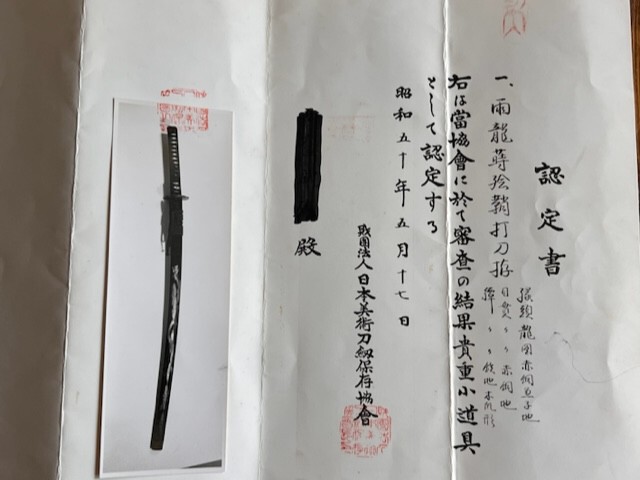 認定書
一、雨龍蒔絵鞘打刀拵
縁頭龍図赤銅魚子地
目貫〃〃赤銅地
鐔〃〃鉄地木瓜形
右は當協會に於て審査の結果貴重小道具
として認定する
昭和五十年五月十七日
殿
財團法人日本美術刀剣保存協會